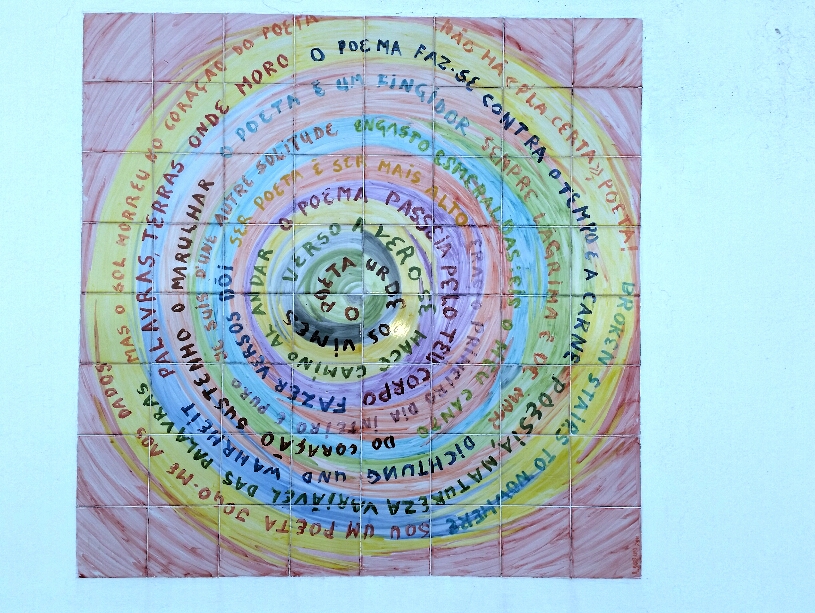 O POETA URDE OS VIMES
VERSO A VERO SE HACE CAMINO AL ANDAR
O POEMA PASSEIA PELO TEU CORPO
FAZER VERSOS DÓI
SER POETA É SER MAIS ALTO
PRIMEIRO DIA INTEIRO E PURO
JE SUIS D'UNE AUTRE SOLITUDE
ENGASTO ESMERALDAS O MEU CANTO
DO CORAÇÃO SUSTENHO O MARULHAR
O POETA É UM FINGIDOR
SEMPRE LÁGRIMA É DE MAR
DICHTUNG UND WAHRHEIT
PALAVRAS, TERRAS ONDE MORO
O POEMA FAZ-SE CONTRA O TEMPO E A CARNE
POESIA, NATUREZA VARIÁVEL DAS PALAVRAS
MAS O SOL MORREU NO CORAÇÃO DO POETA
NÃO HÁ CERTA, POETA!
BROKEN STAIRS TO NOWHERE
SOU UM POETA JOGO-ME AOS DADOS